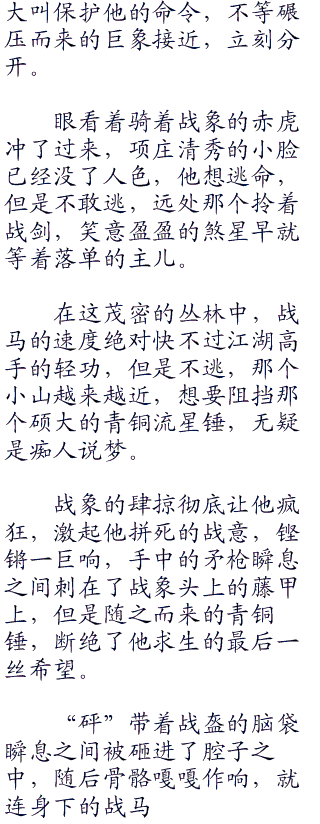 大叫保护他的命令，不等碾
压而来的巨象接近，立刻分
开。
眼看着骑着战象的赤虎
冲了过来，项庄清秀的小脸
已经没了人色，他想逃命，
但是不敢逃，远处那个拎着
战剑，笑意盈盈的煞星早就
等着落单的主儿。
在这茂密的丛林中，战
马的速度绝对快不过江湖高
手的轻功，但是不逃，那个
小山越来越近，想要阻挡那
个硕大的青铜流星锤，无疑
是痴人说梦。
战象的肆掠彻底让他疯
狂，激起他拼死的战意，铿
锵一巨响，手中的矛枪瞬息
之间刺在了战象头上的藤甲
上，但是随之而来的青铜
锤，断绝了他求生的最后一
丝希望。
“砰”带着战盔的脑袋
瞬息之间被砸进了腔子之
中，随后骨骼嘎嘎作响，就
连身下的战马